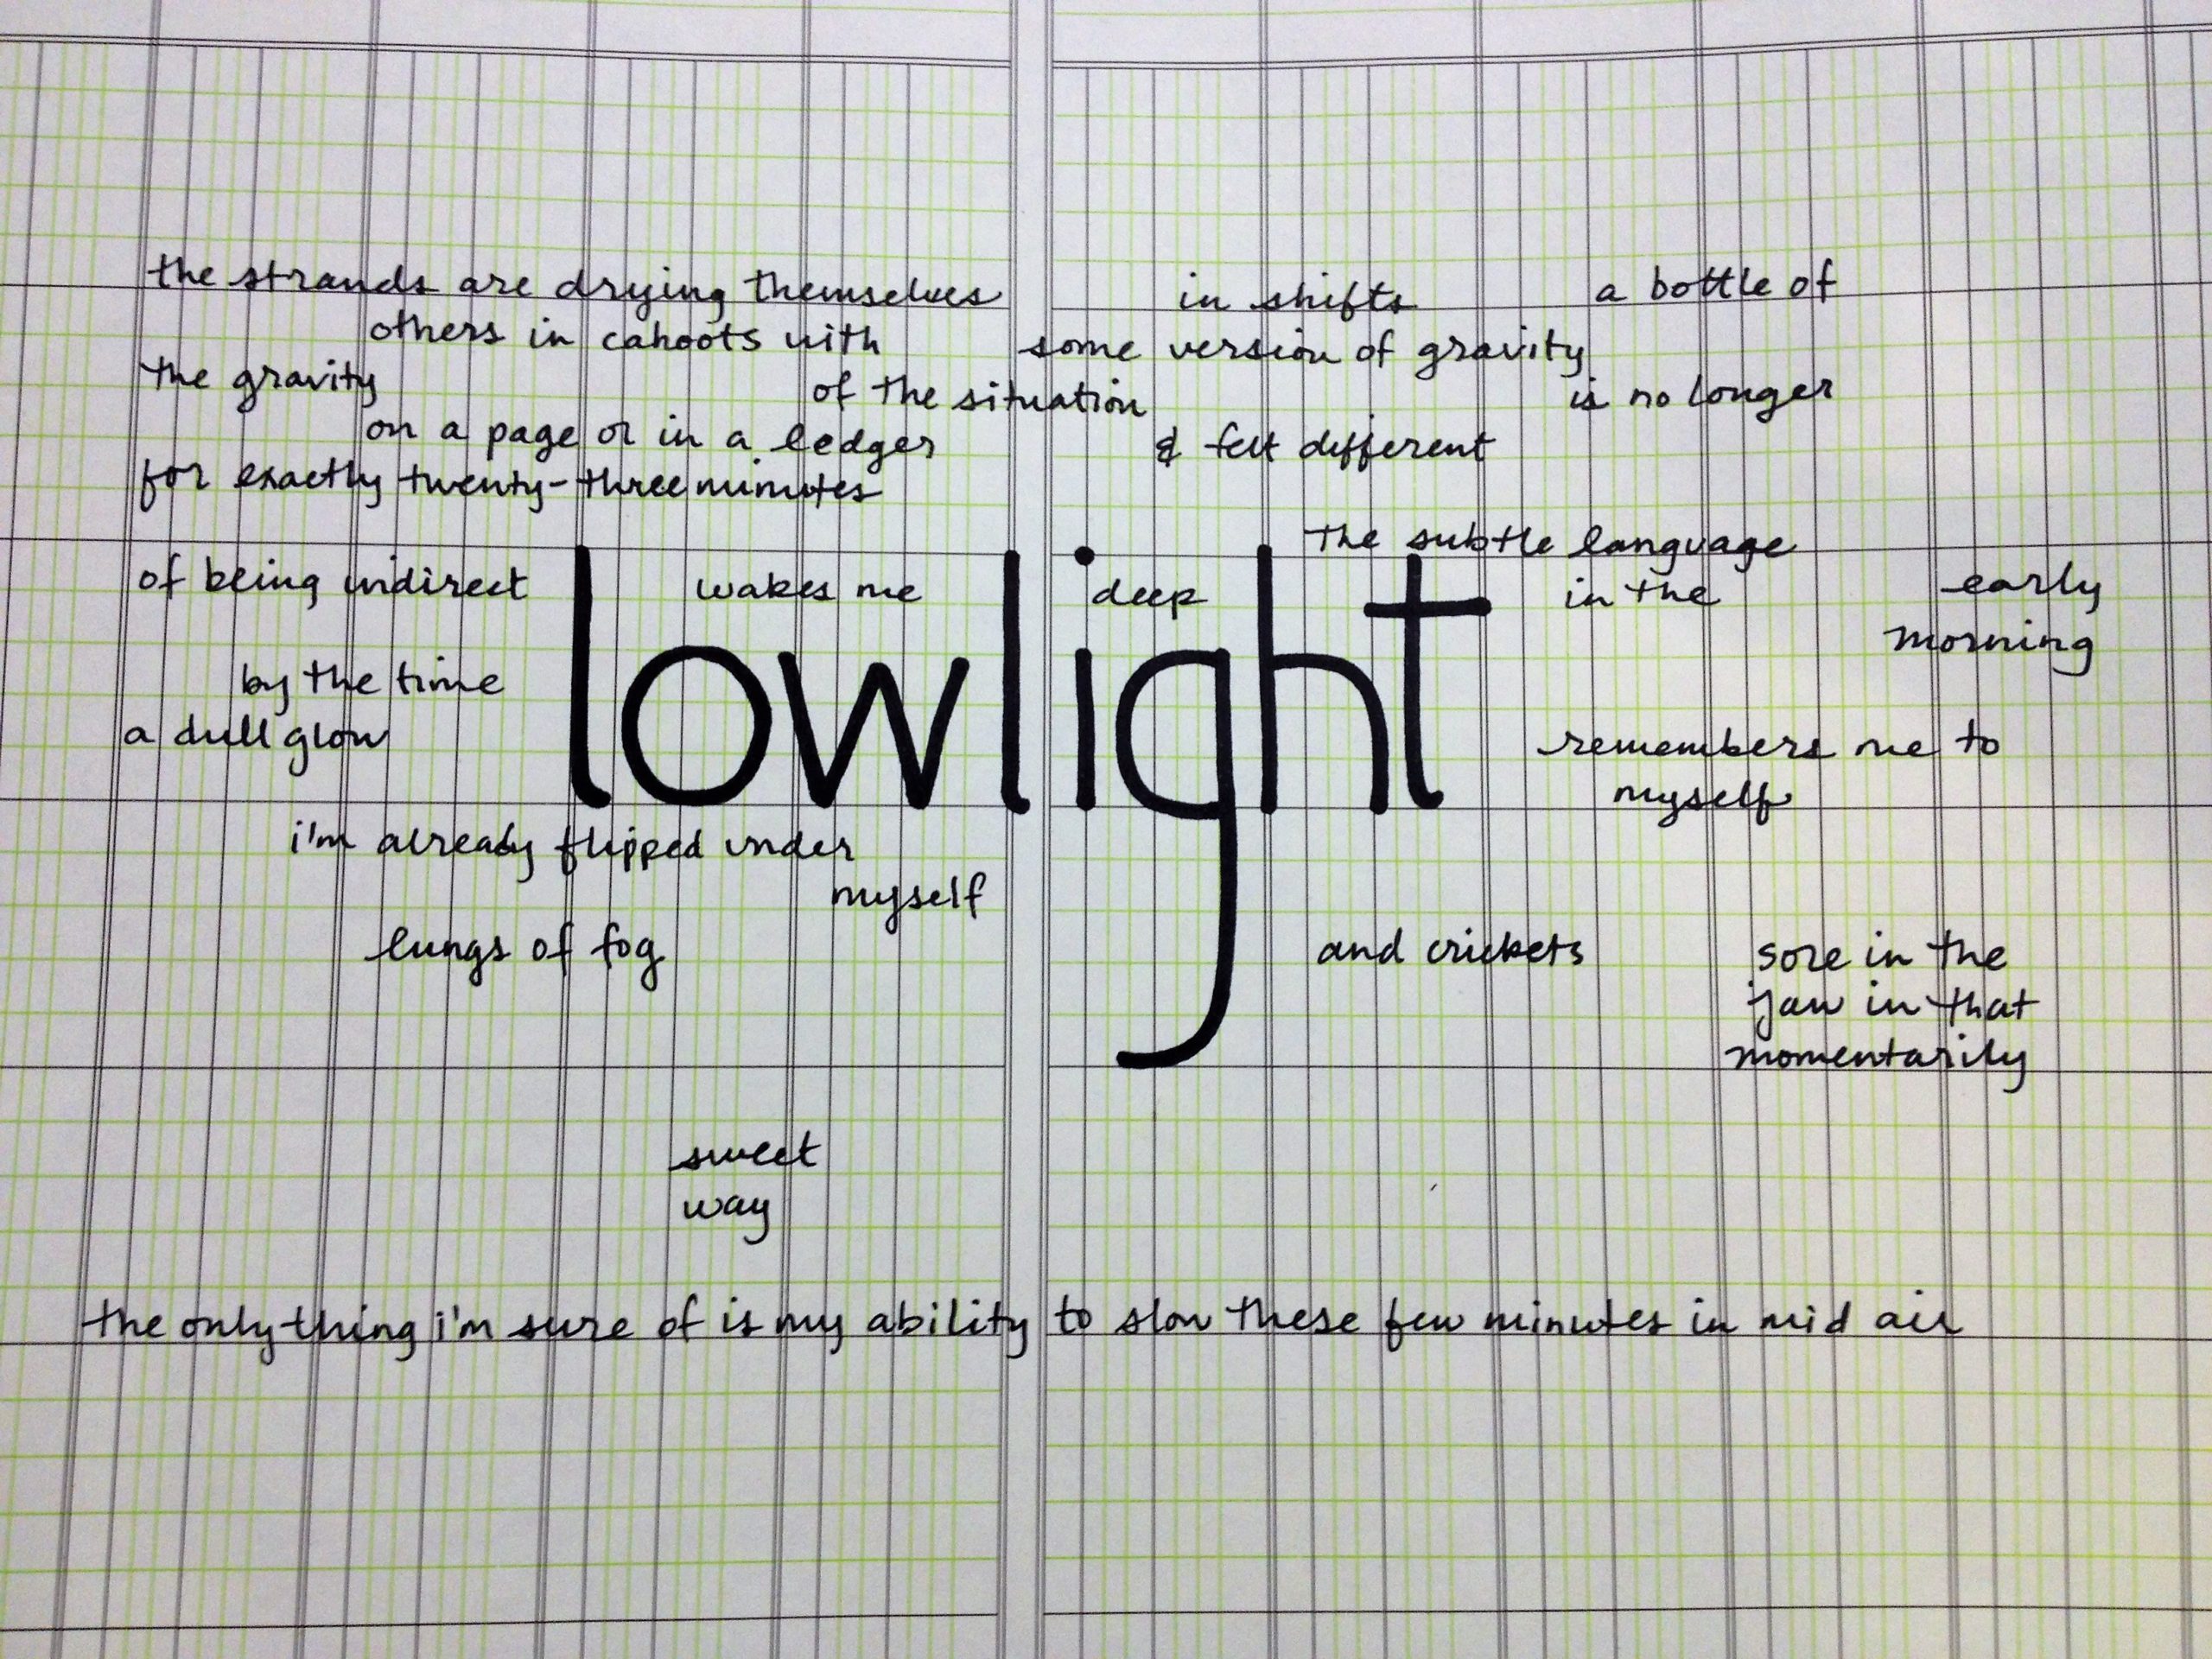 the strands are drying themselves in shifts a bottle of
others in cahoots with some version of gravity
the gravity of the situation is no longer
on a page or in a ledger & felt different
for exactly twenty-three minutes
the subtle language
of being indirect wakes me deep in the early
morning
lowlight
by the time
a dull glow remembers me to
myself
i'm already flipped under
myself
lungs of fog and crickets sore in the
jaw in that
momentarily
sweet
way
the only thing i'm sure of is my ability to slow these few minutes in mid air